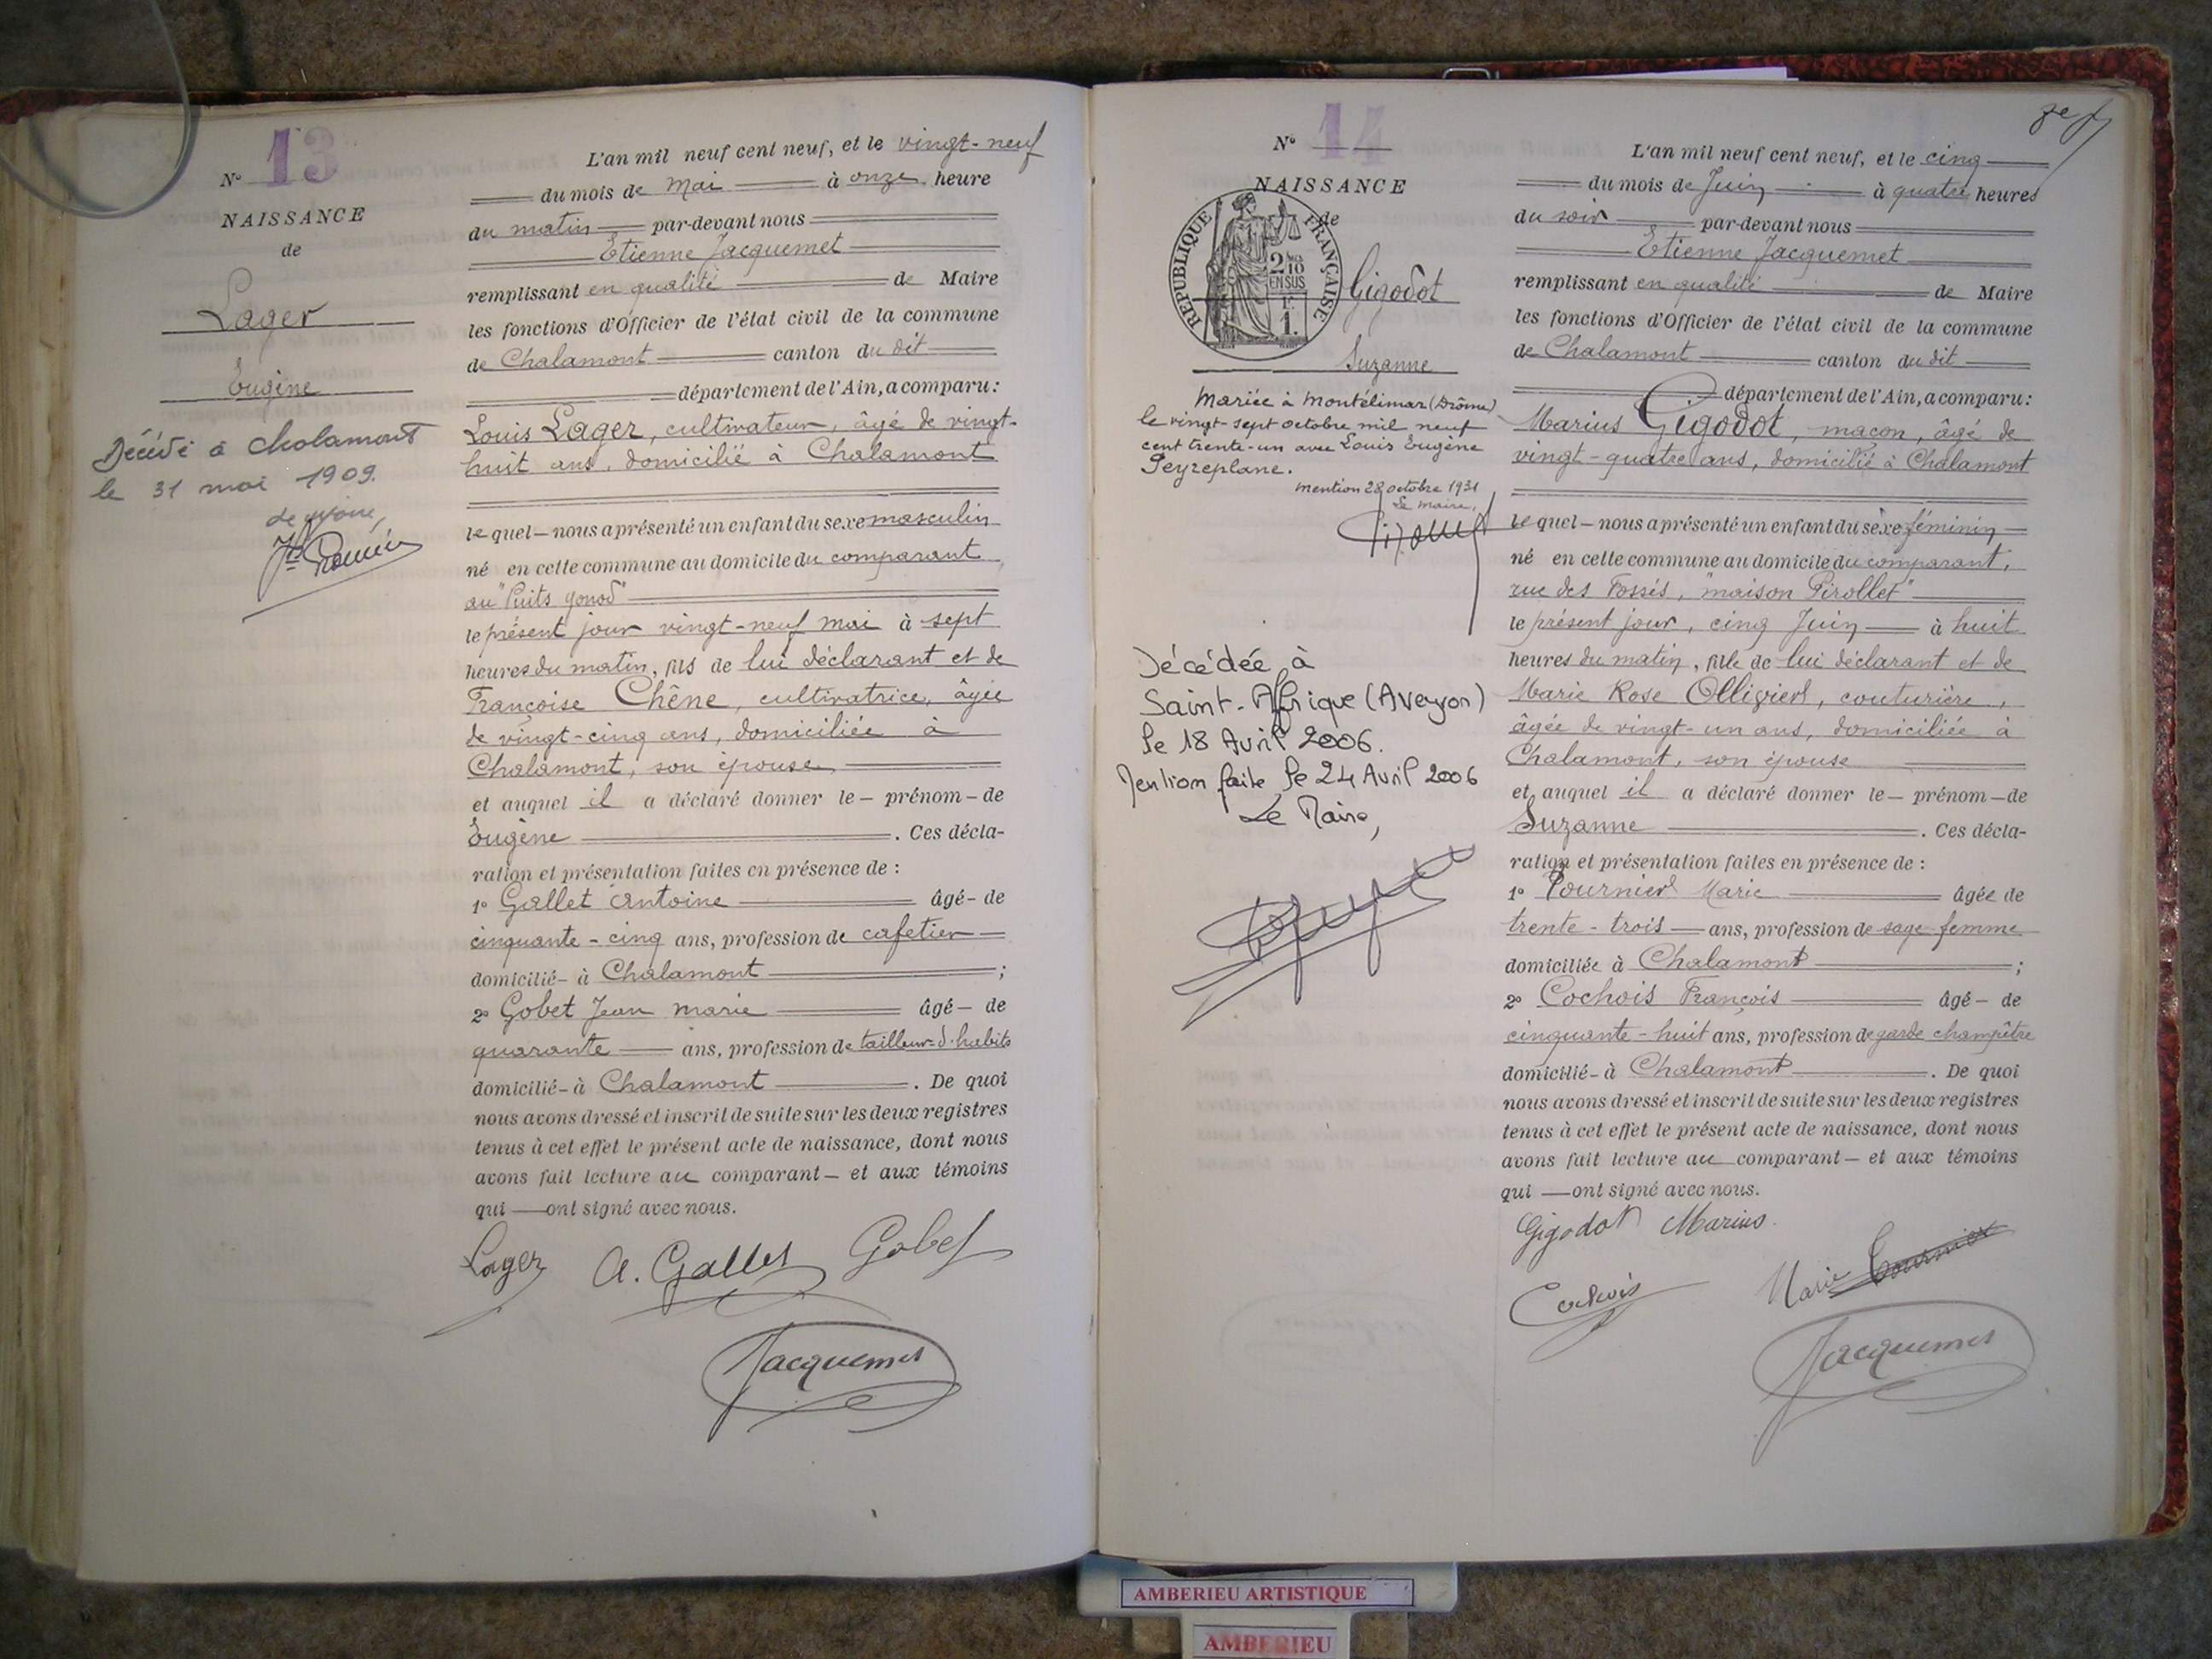 N° 13
NAISSANCE
de
Lager
Eugène
Décédé à Chalamont
le 31 mai 1909.
L'an mil neuf cent neuf, et le vingt-neuf
du mois de Mai à onze heure
du matin par-devant nous
Etienne Jacquemet
remplissant en qualité de Maire
les fonctions d'Officier de l'état civil de la commune
de Chalamont canton du dit
département de l'Ain, a comparu:
Louis Lager, cultivateur, âgé de vingt-
huit ans, domicilié à Chalamont
lequel – nous a présenté un enfant du sexe masculin
né en cette commune au domicile du comparant
au "Puits Gonod"
le présent jour vingt-neuf mai à sept
heures du matin, fils de lui déclarant et de
Françoise Chêne, cultivatrice, âgée
de vingt-cinq ans, domiciliée à
Chalamont, son épouse
et auquel il a déclaré donner le – prénom – de
Eugène . Ces décla-
ration et présentation faites en présence de :
1° Gallet Antoine âgé - de
cinquante - cinq ans, profession de cafetier
domicilié - à Chalamont ;
2° Gobet Jean marie âgé – de
quarante ans, profession de tailleur d'habits
domicilié - à Chalamont . De quoi
nous avons dressé et inscrit de suite sur les deux registres
tenus à cet effet le présent acte de naissance, dont nous
avons fait lecture au comparant – et aux témoins
qui — ont signé avec nous.
Lager A. Gallet Gobet
Jacquemet
N° 14
NAISSANCE
de
REPUBLIQUE FRANÇAISE
2/10
EN SUS
1.
Gigodot
Suzanne
Mariée à Montélimar (Drôme)
le vingt-sept octobre mil neuf
cent trente-un avec Louis Eugène
Peyreplane.
mention 28 octobre 1931
Le maire,
Décédée à
Saint-Affrique (Aveyron)
le 18 Avril 2006.
Mention faite le 24 Avril 2006
Le Maire,
L'an mil neuf cent neuf, et le cinq
du mois de Juin à quatre heures
du soir par-devant nous
Etienne Jacquemet
remplissant en qualité de Maire
les fonctions d'Officier de l'état civil de la commune
de Chalamont canton du dit
département de l'Ain, a comparu:
Marius Gigodot, maçon, âgé de
vingt-quatre ans, domicilié à Chalamont
lequel – nous a présenté un enfant du sexe féminin
né en cette commune au domicile du comparant,
rue des Fossés, "maison Pirollet"
le présent jour, cinq Juin à huit
heures du matin, fille de lui déclarant et de
Marie Rose Ollivier, couturière,
âgée de vingt-un ans, domiciliée à
Chalamont, son épouse
et auquel il a déclaré donner le – prénom – de
Suzanne . Ces décla-
ration et présentation faites en présence de :
1° Fournier Marie âgée de
trente - trois ans, profession de sage femme
domiciliée à Chalamont ;
2° Cochois François âgé – de
cinquante - huit ans, profession de garde champêtre
domicilié - à Chalamont . De quoi
nous avons dressé et inscrit de suite sur les deux registres
tenus à cet effet le présent acte de naissance, dont nous
avons fait lecture au comparant – et aux témoins
qui — ont signé avec nous.
Gigodot Marius
Cochois Marie Fournier
Jacquemet
AMBERIEU ARTISTIQUE
AMBERIEU